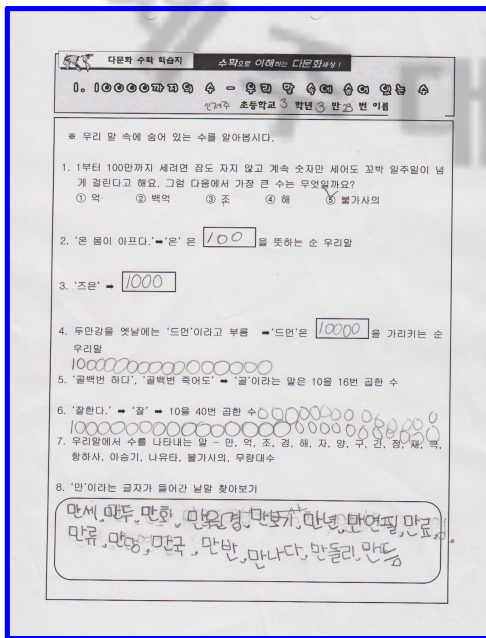 다문화 수학 학습지
수학으로 이해하는 다문화세상!
1. 10000까지의 수 - 우리 말 속에 숨어 있는 수
신제주 초등학교 3 학년 3 반 23 번 이름
※ 우리 말 속에 숨어 있는 수를 알아봅시다.
1. 1부터 100만까지 세려면 잠도 자지 않고 계속 숫자만 세어도 꼬박 일주일이 넘
게 걸린다고 해요. 그럼 다음에서 가장 큰 수는 무엇일까요?
① 억 ② 백억 ③ 조 ④ 해 ⑤ 불가사의
2. '온 몸이 아프다.'➡'온' 은 100 을 뜻하는 순 우리말
3. '즈은' ➡ 1000
4. 두만강을 옛날에는 '드먼'이라고 부름 ➡'드먼'은 10000 을 가리키는 순
우리말
5. '골백번 하다', '골백번 죽어도' ➡ '골'이라는 말은 10을 16번 곱한 수
6. '잘한다.' ➡ '잘' ➡ 10을 40번 곱한 수
7. 우리말에서 수를 나타내는 말 - 만, 억, 조, 경, 해, 자, 양, 구, 간, 정, 재, 극,
항하사, 아승기, 나유타, 불가사의, 무량대수
8. '만'이라는 글자가 들어간 낱말 찾아보기
만세, 만두, 만화, 만원경, 만보기, 만년, 만년필, 만료,
만류, 만능, 만국, 만반, 만나다, 만돌린, 만듬